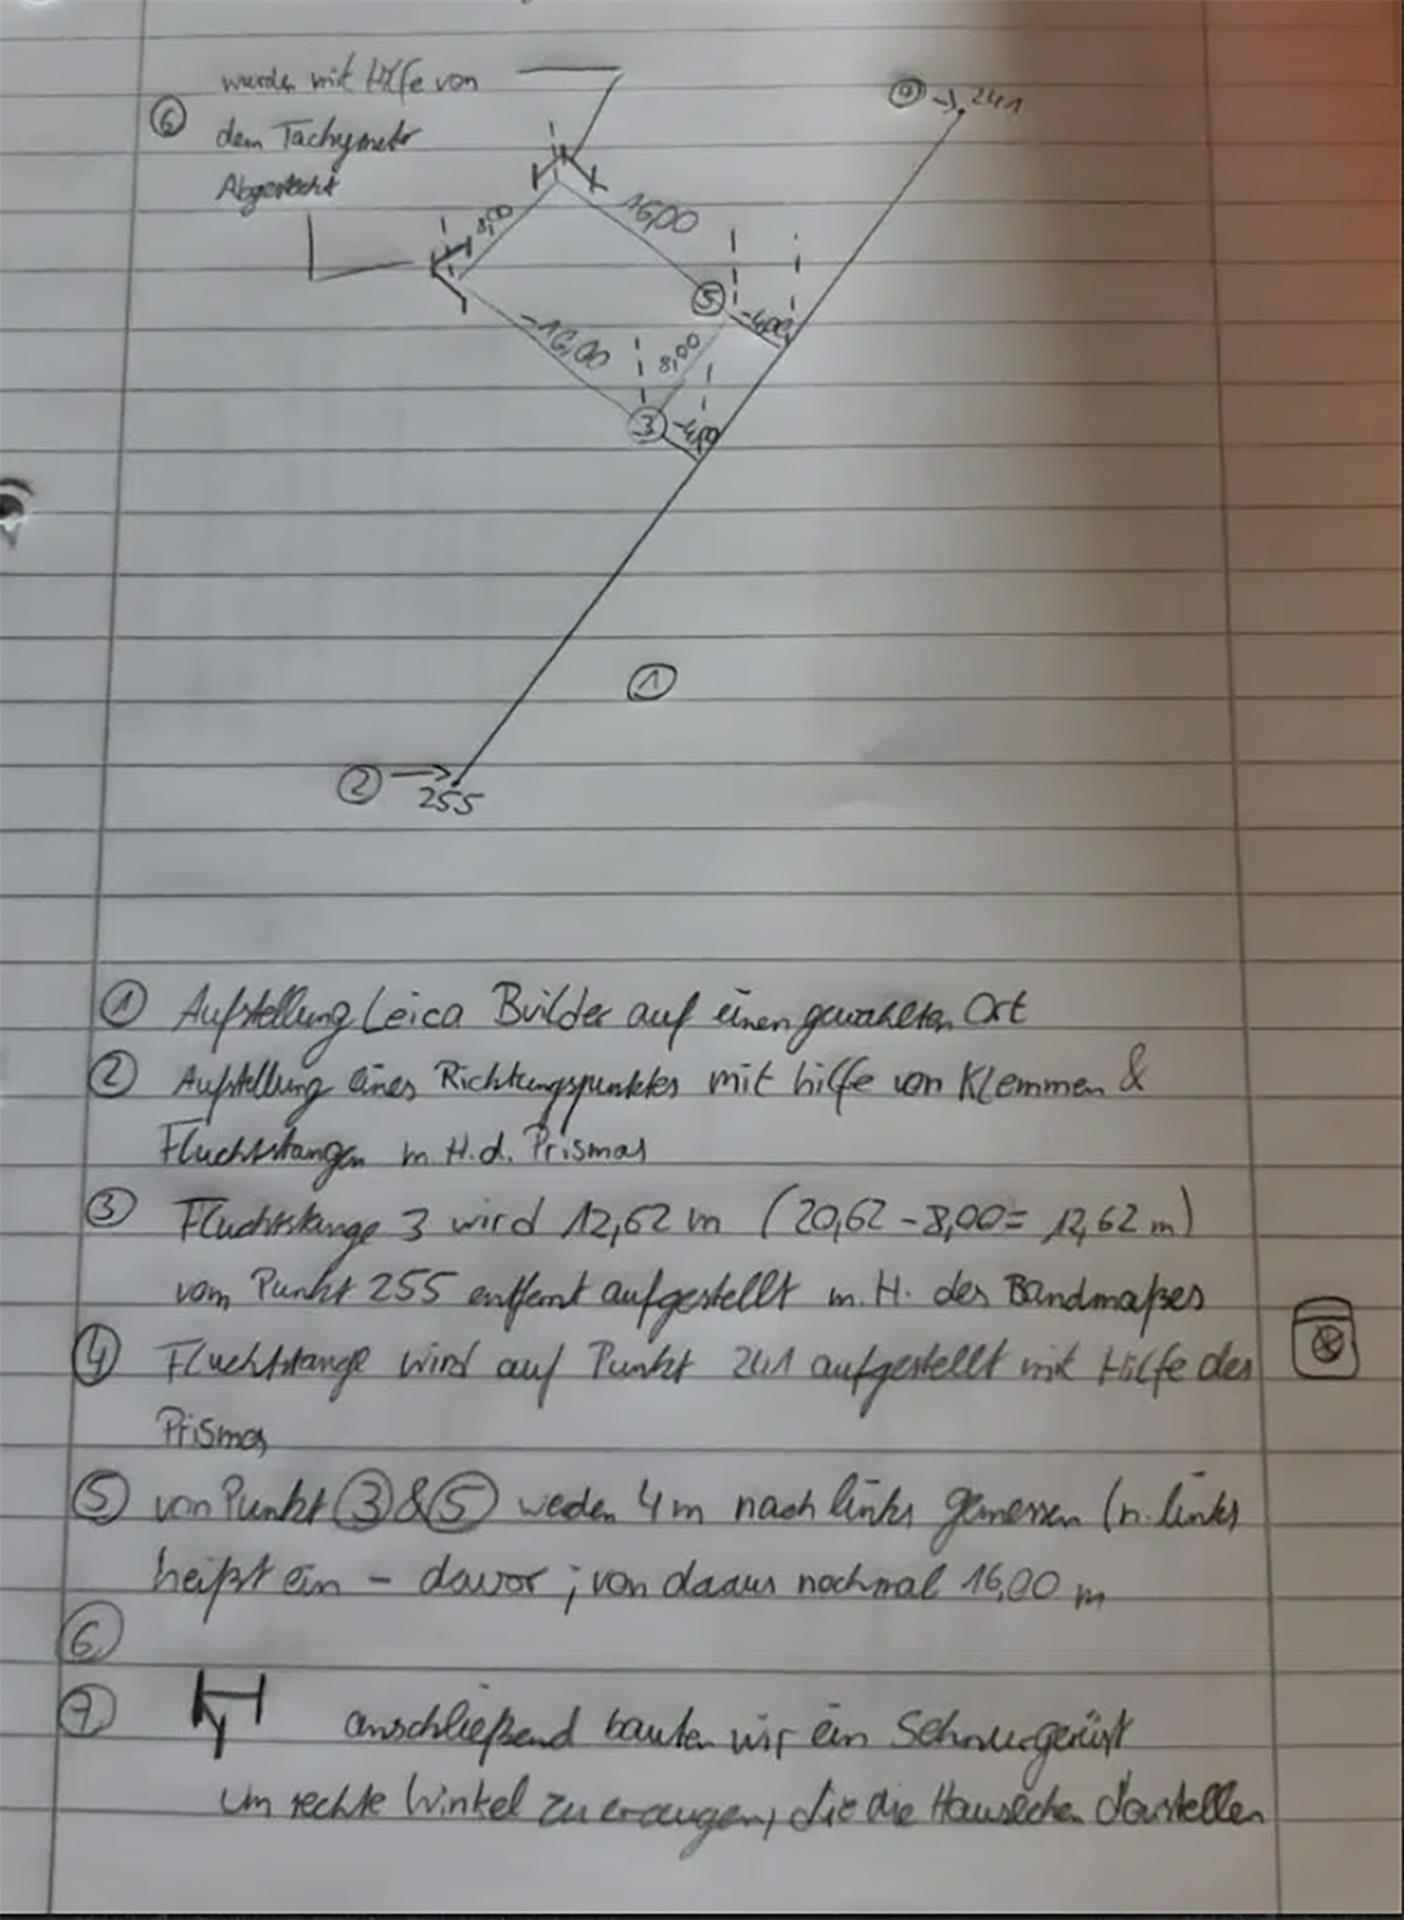 wurden mit Hilfe von
⑥ dem Tachymetr
Abgesteckt
④ → 241
8,00
16,00
⑤
-4,00
-16,00
8,00
③ -4,00
①
② →
255
① Aufstellung Leica Builder auf einen gewählten Ort
② Aufstellung eines Richtungspunktes mit hilfe von Klemmen &
Fluchtstangen m. H. d. Prismas
③ Fluchtstange 3 wird 12,62 m (20,62 - 8,00 = 12,62 m)
vom Punkt 255 entfernt aufgestellt m. H. des Bandmaßes
④ Fluchtstange wird auf Punkt 241 aufgestellt mit Hilfe des
Prismas
⑤ von Punkt ③ & ⑤ weden 4 m nach links gemessen (n. links
heißt ein - davor ; von daaus nochmal 16,00 m
⑥
⑦ anschließend bauten wir ein Schnurgerüst
um rechte Winkel zu erzeugen, die die Hausecken darstellen